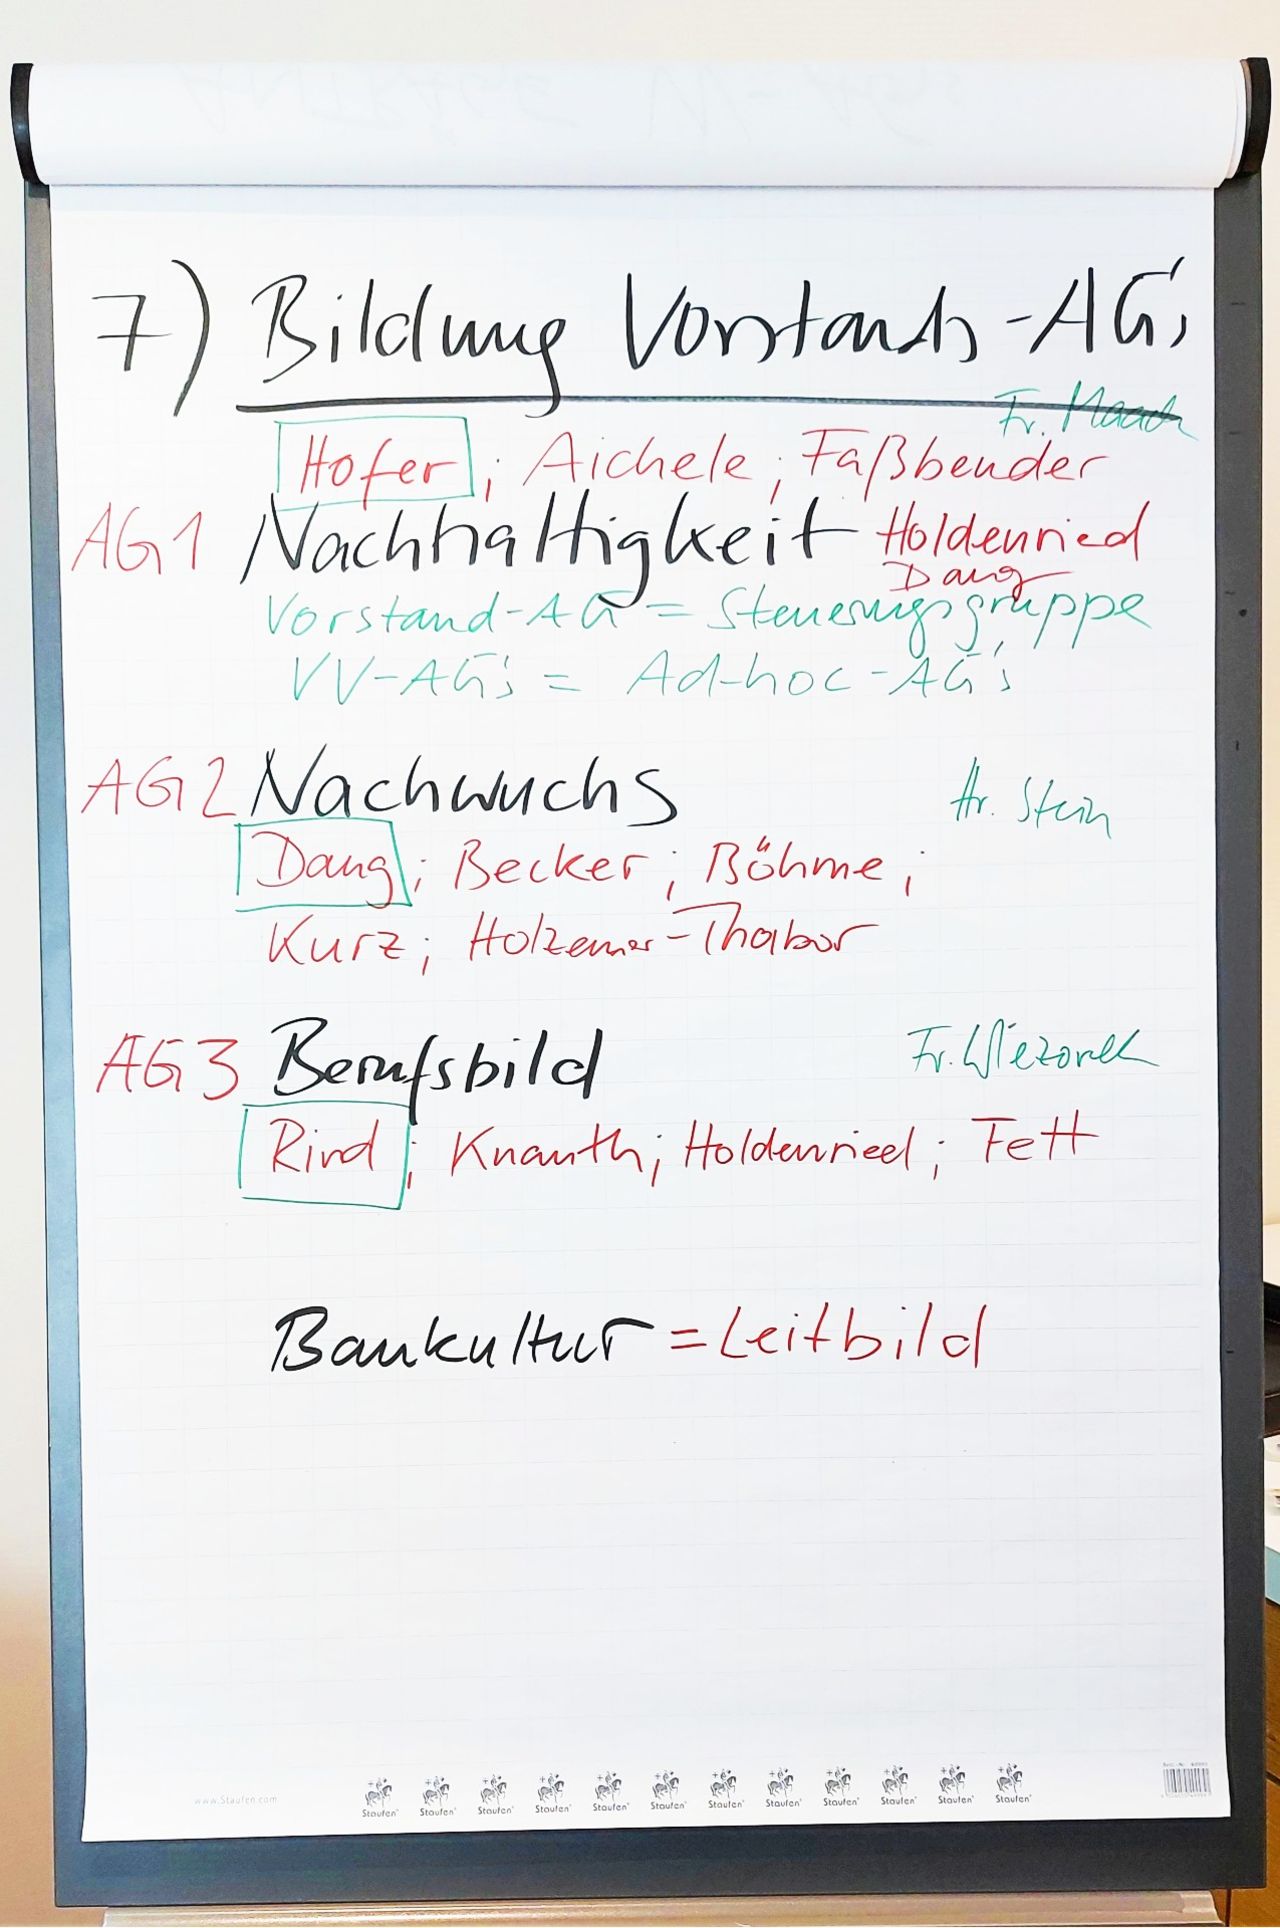 7) Bildung Vorstands-AG's
Fr. Maach
Hofer ; Aichele ; Faßbender
AG1 Nachhaltigkeit Holdenried
Dang
Vorstand-AG = Steuerungsgruppe
VV-AG's = Ad-hoc-AG's
AG2 Nachwuchs Hr. Stein
Dang ; Becker ; Böhme ;
Kurz ; Holzemer-Thabor
AG3 Berufsbild Fr. Wiezorek
Rind ; Knauth ; Holdenried ; Fett
Baukultur = Leitbild
www.Staufen.com Staufen Staufen Staufen Staufen Staufen Staufen Staufen Staufen Staufen Staufen Staufen Staufen